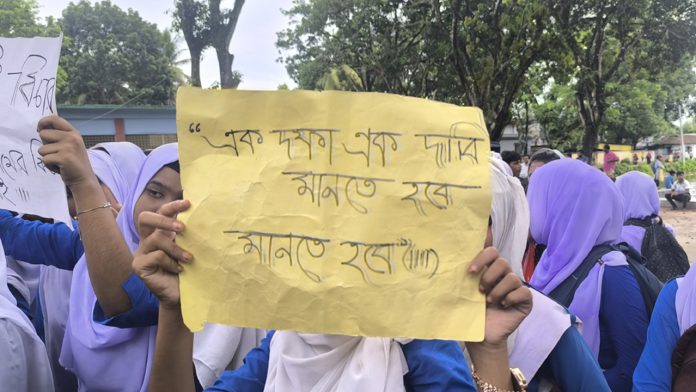 বিচার
"এক দফা এক দাবি
মানতে হবে
মানতে হবে"!!!!